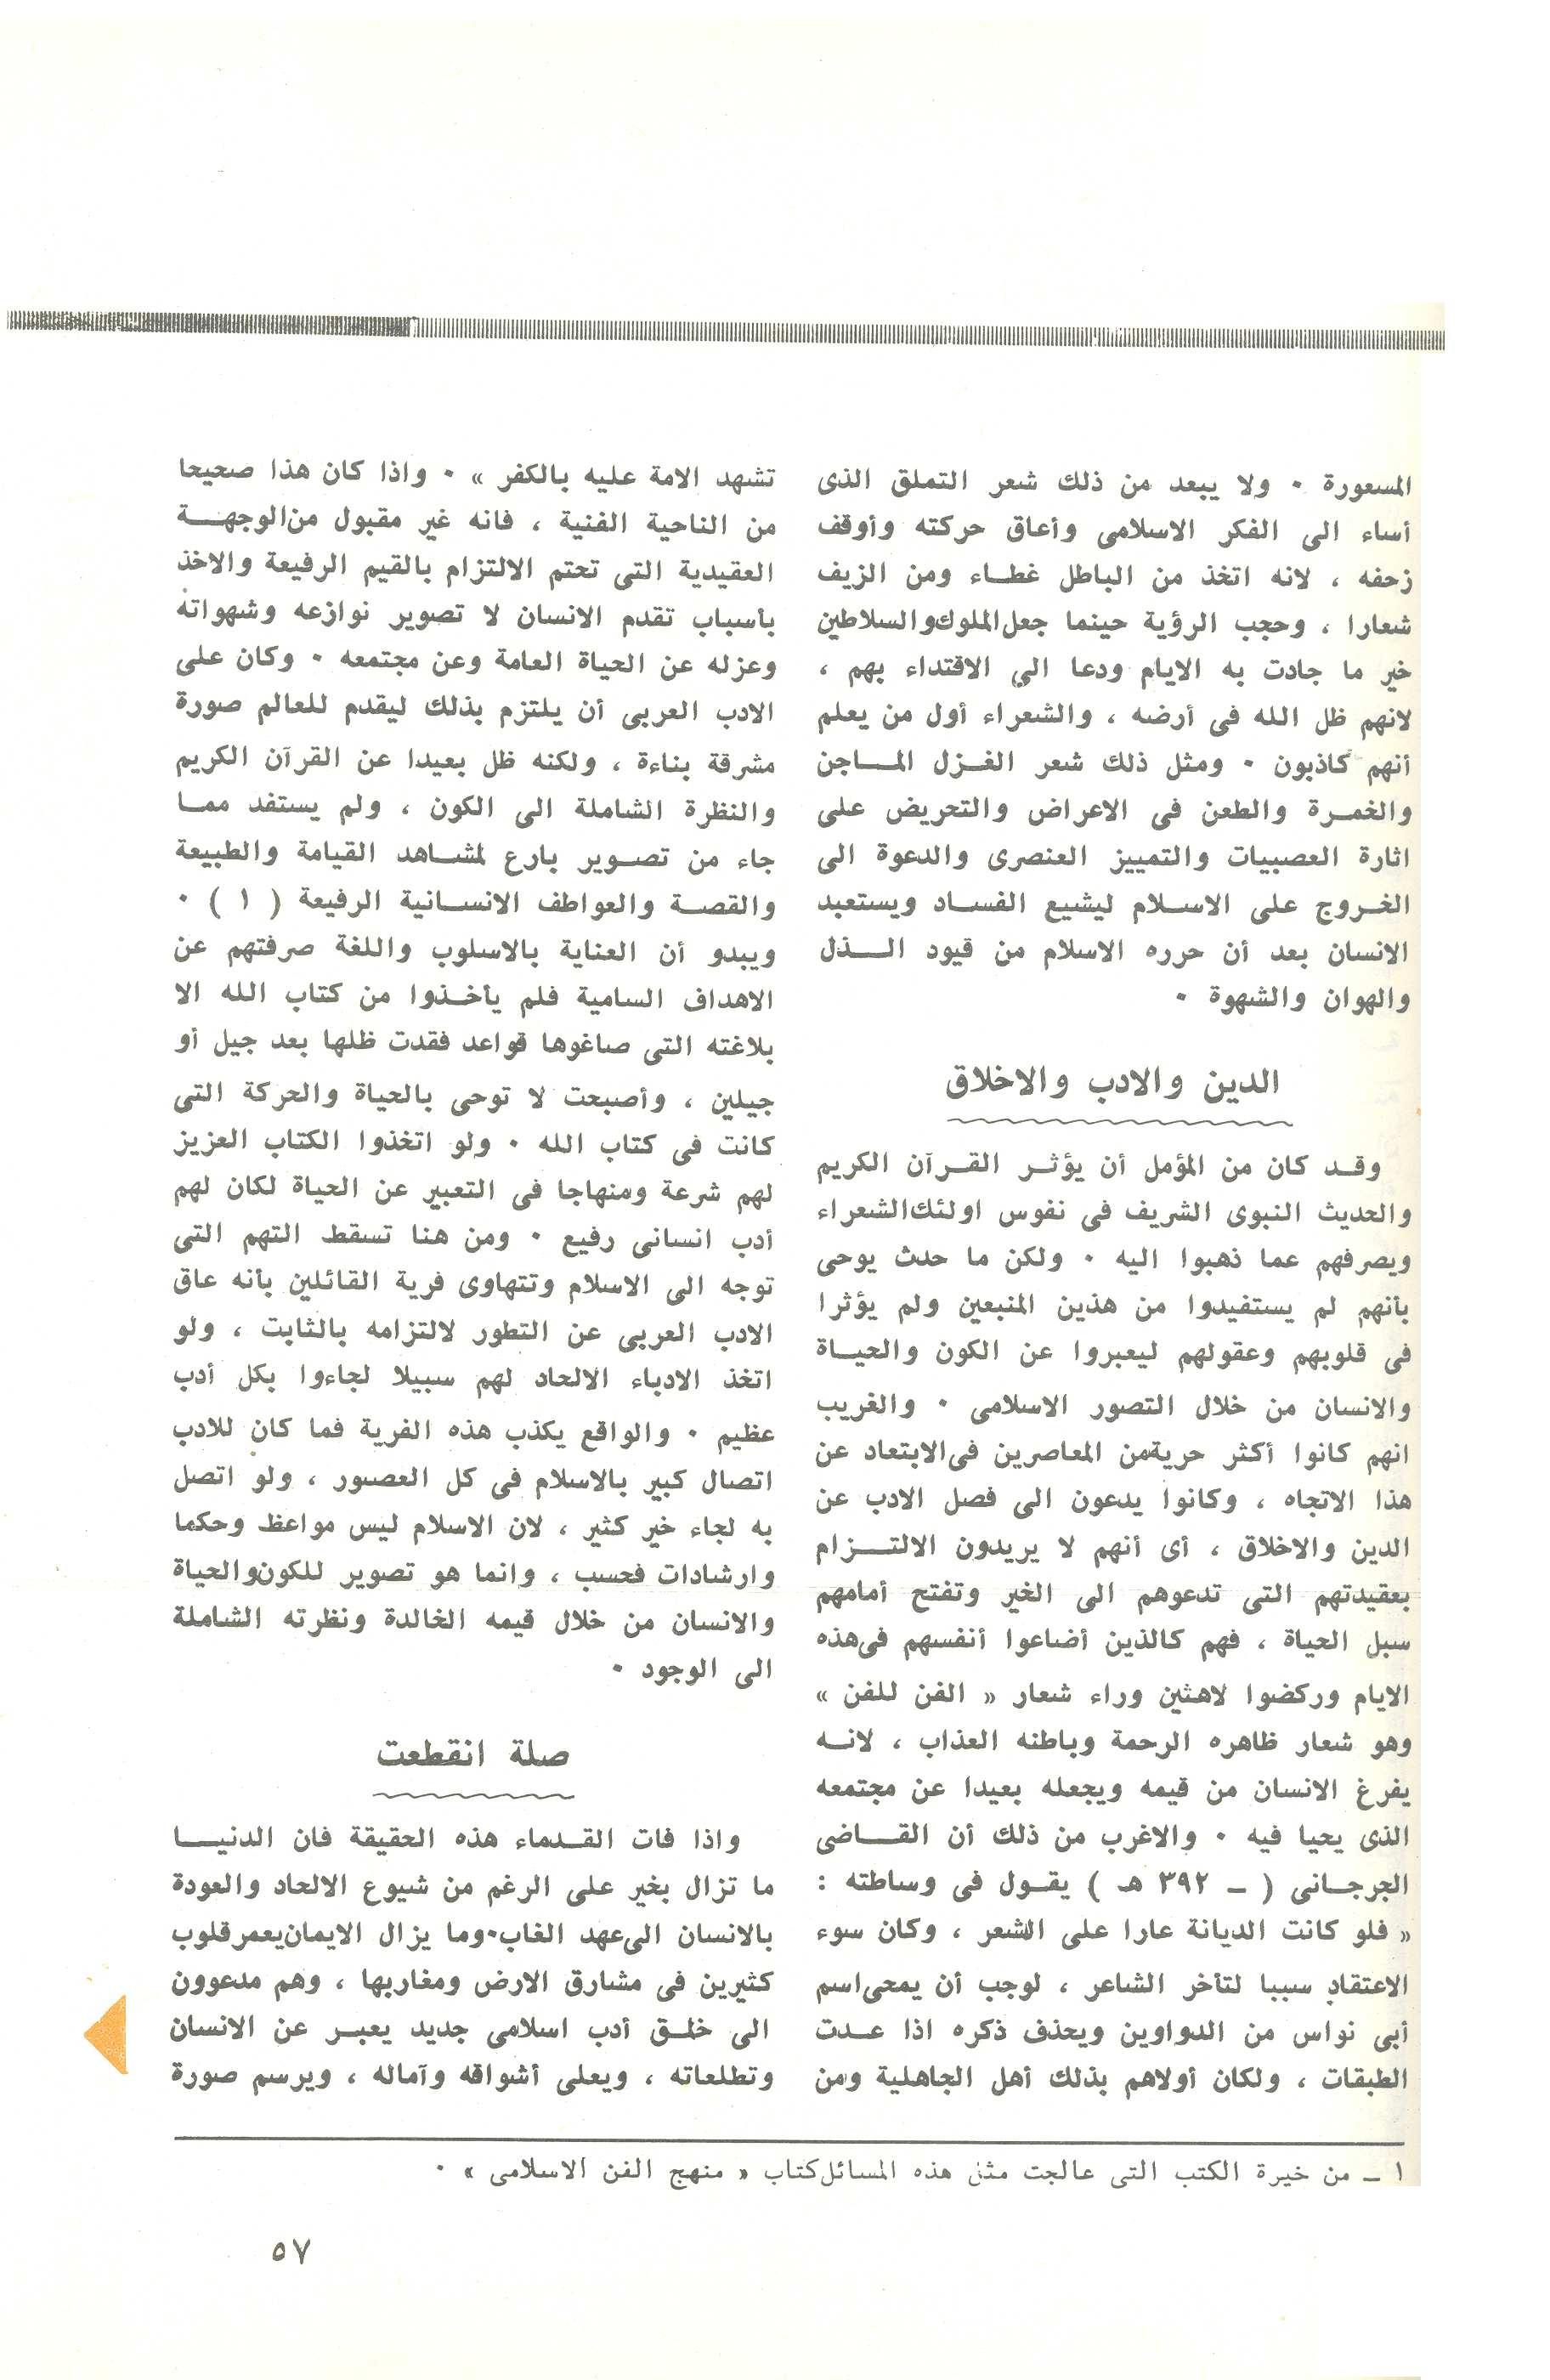 المسعورة ٠ ولا يبعد من ذلك شعر التملق الذى
أساء الى الفكر الاسلامى وأعاق حركته وأوقف
زحفه ، لانه اتخذ من الباطل غطاء ومن الزيف
شعارا ، وحجب الرؤية حينما جعل الملوك والسلاطين
خير ما جادت به الايام ودعا الى الاقتداء بهم ،
لانهم ظل الله فى أرضه ، والشعراء أول من يعلم
أنهم كاذبون ٠ ومثل ذلك شعر الغزل الماجن
والخمرة والطعن فى الاعراض والتحريض على
اثارة العصبيات والتمييز العنصرى والدعوة الى
الخروج على الاسلام ليشيع الفساد ويستعبد
الانسان بعد أن حرره الاسلام من قيود الذل
والهوان والشهوة ٠
الدين والادب والاخلاق
وقد كان من المؤمل أن يؤثر القرآن الكريم
والحديث النبوى الشريف فى نفوس اولئك الشعراء
ويصرفهم عما ذهبوا اليه ٠ ولكن ما حدث يوحى
بأنهم لم يستفيدوا من هذين المنبعين ولم يؤثرا
فى قلوبهم وعقولهم ليعبروا عن الكون والحياة
والانسان من خلال التصور الاسلامى ٠ والغريب
انهم كانوا أكثر حرية من المعاصرين فى الابتعاد عن
هذا الاتجاه ، وكانوا يدعون الى فصل الادب عن
الدين والاخلاق ، أى أنهم لا يريدون الالتزام
بعقيدتهم التى تدعوهم الى الخير وتفتح أمامهم
سبل الحياة ، فهم كالذين أضاعوا أنفسهم فى هذه
الايام وركضوا لاهثين وراء شعار « الفن للفن »
وهو شعار ظاهره الرحمة وباطنه العذاب ، لانه
يفرغ الانسان من قيمه ويجعله بعيدا عن مجتمعه
الذى يحيا فيه ٠ والاغرب من ذلك أن القاضى
الجرجانى ( ـ ٣٩٢ هـ ) يقول فى وساطته :
« فلو كانت الديانة عارا على الشعر ، وكان سوء
الاعتقاد سببا لتأخر الشاعر ، لوجب أن يمحى اسم
أبى نواس من الدواوين ويحذف ذكره اذا عدت
الطبقات ، ولكان أولاهم بذلك أهل الجاهلية ومن
تشهد الامة عليه بالكفر » ٠ واذا كان هذا صحيحا
من الناحية الفنية ، فانه غير مقبول من الوجهة
العقيدية التى تحتم الالتزام بالقيم الرفيعة والاخذ
بأسباب تقدم الانسان لا تصوير نوازعه وشهواته
وعزله عن الحياة العامة وعن مجتمعه ٠ وكان على
الادب العربى أن يلتزم بذلك ليقدم للعالم صورة
مشرقة بناءة ، ولكنه ظل بعيدا عن القرآن الكريم
والنظرة الشاملة الى الكون ، ولم يستفد مما
جاء من تصوير بارع لمشاهد القيامة والطبيعة
والقصة والعواطف الانسانية الرفيعة ( ١ ) ٠
ويبدو أن العناية بالاسلوب واللغة صرفتهم عن
الاهداف السامية فلم يأخذوا من كتاب الله الا
بلاغته التى صاغوها قواعد فقدت ظلها بعد جيل أو
جيلين ، وأصبحت لا توحى بالحياة والحركة التى
كانت فى كتاب الله ٠ ولو اتخذوا الكتاب العزيز
لهم شرعة ومنهاجا فى التعبير عن الحياة لكان لهم
أدب انسانى رفيع ٠ ومن هنا تسقط التهم التى
توجه الى الاسلام وتتهاوى فرية القائلين بأنه عاق
الادب العربى عن التطور لالتزامه بالثابت ، ولو
اتخذ الادباء الالحاد لهم سبيلا لجاءوا بكل أدب
عظيم ٠ والواقع يكذب هذه الفرية فما كان للادب
اتصال كبير بالاسلام فى كل العصور ، ولو اتصل
به لجاء خير كثير ، لان الاسلام ليس مواعظ وحكما
وارشادات فحسب ، وانما هو تصوير للكون والحياة
والانسان من خلال قيمه الخالدة ونظرته الشاملة
الى الوجود ٠
صلة انقطعت
واذا فات القدماء هذه الحقيقة فان الدنيا
ما تزال بخير على الرغم من شيوع الالحاد والعودة
بالانسان الى عهد الغاب ٠ وما يزال الايمان يعمر قلوب
كثيرين فى مشارق الارض ومغاربها ، وهم مدعوون
الى خلق أدب اسلامى جديد يعبر عن الانسان
وتطلعاته ، ويعلى أشواقه وآماله ، ويرسم صورة
١ ـ من خيرة الكتب التى عالجت مثل هذه المسائل كتاب « منهج الفن الاسلامى » ٠
٥٧